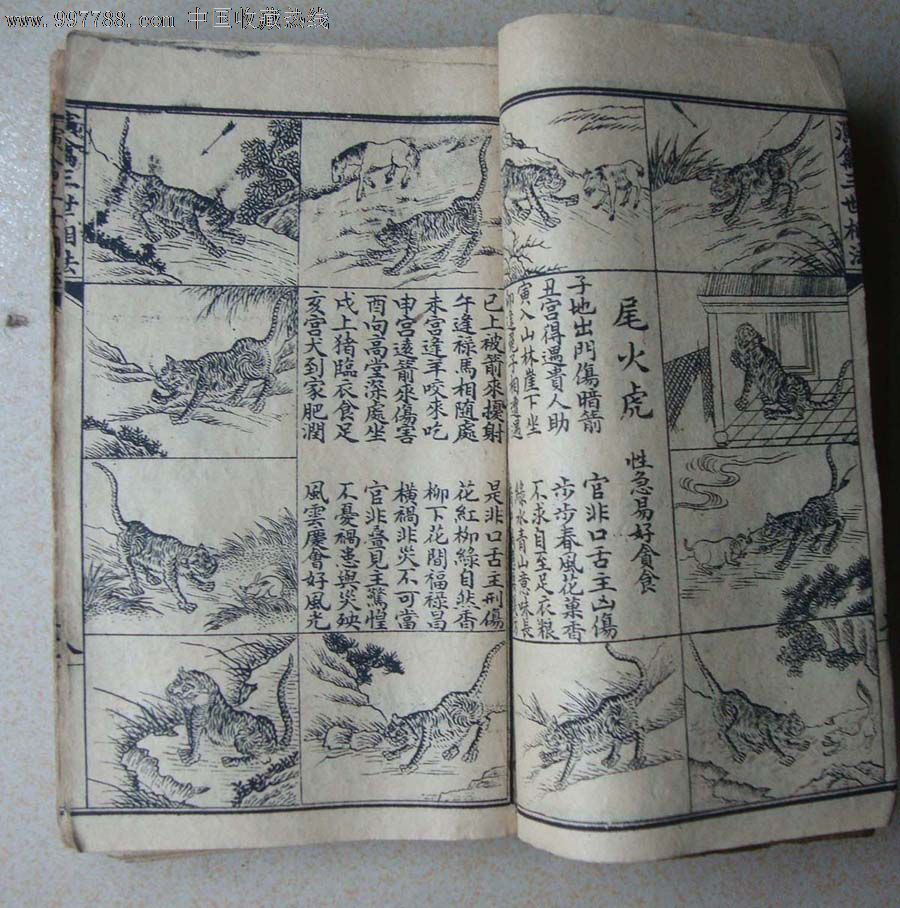 www.997788.com 中国收藏热线
演禽三世相法
尾火虎 性急易好貪食
子地出門傷暗箭 官非口舌主凶傷
丑宮得遇貴人助 步步春風花菓香
寅入山林崖下坐 不求自至足衣粮
卯逢兔子相遭遇 綠水青山意味長
巳上被箭來擾射 是非口舌主刑傷
午逢祿馬相隨處 花紅柳綠自然香
未宮逢羊咬來吃 柳下花間福祿昌
申宮遠箭來傷害 橫禍非災不可當
酉向高堂深處坐 官非嘗見主驚惶
戌上猪臨衣食足 不憂禍患與災殃
亥宮犬到家肥潤 風雲慶會好風光
演禽三世相法